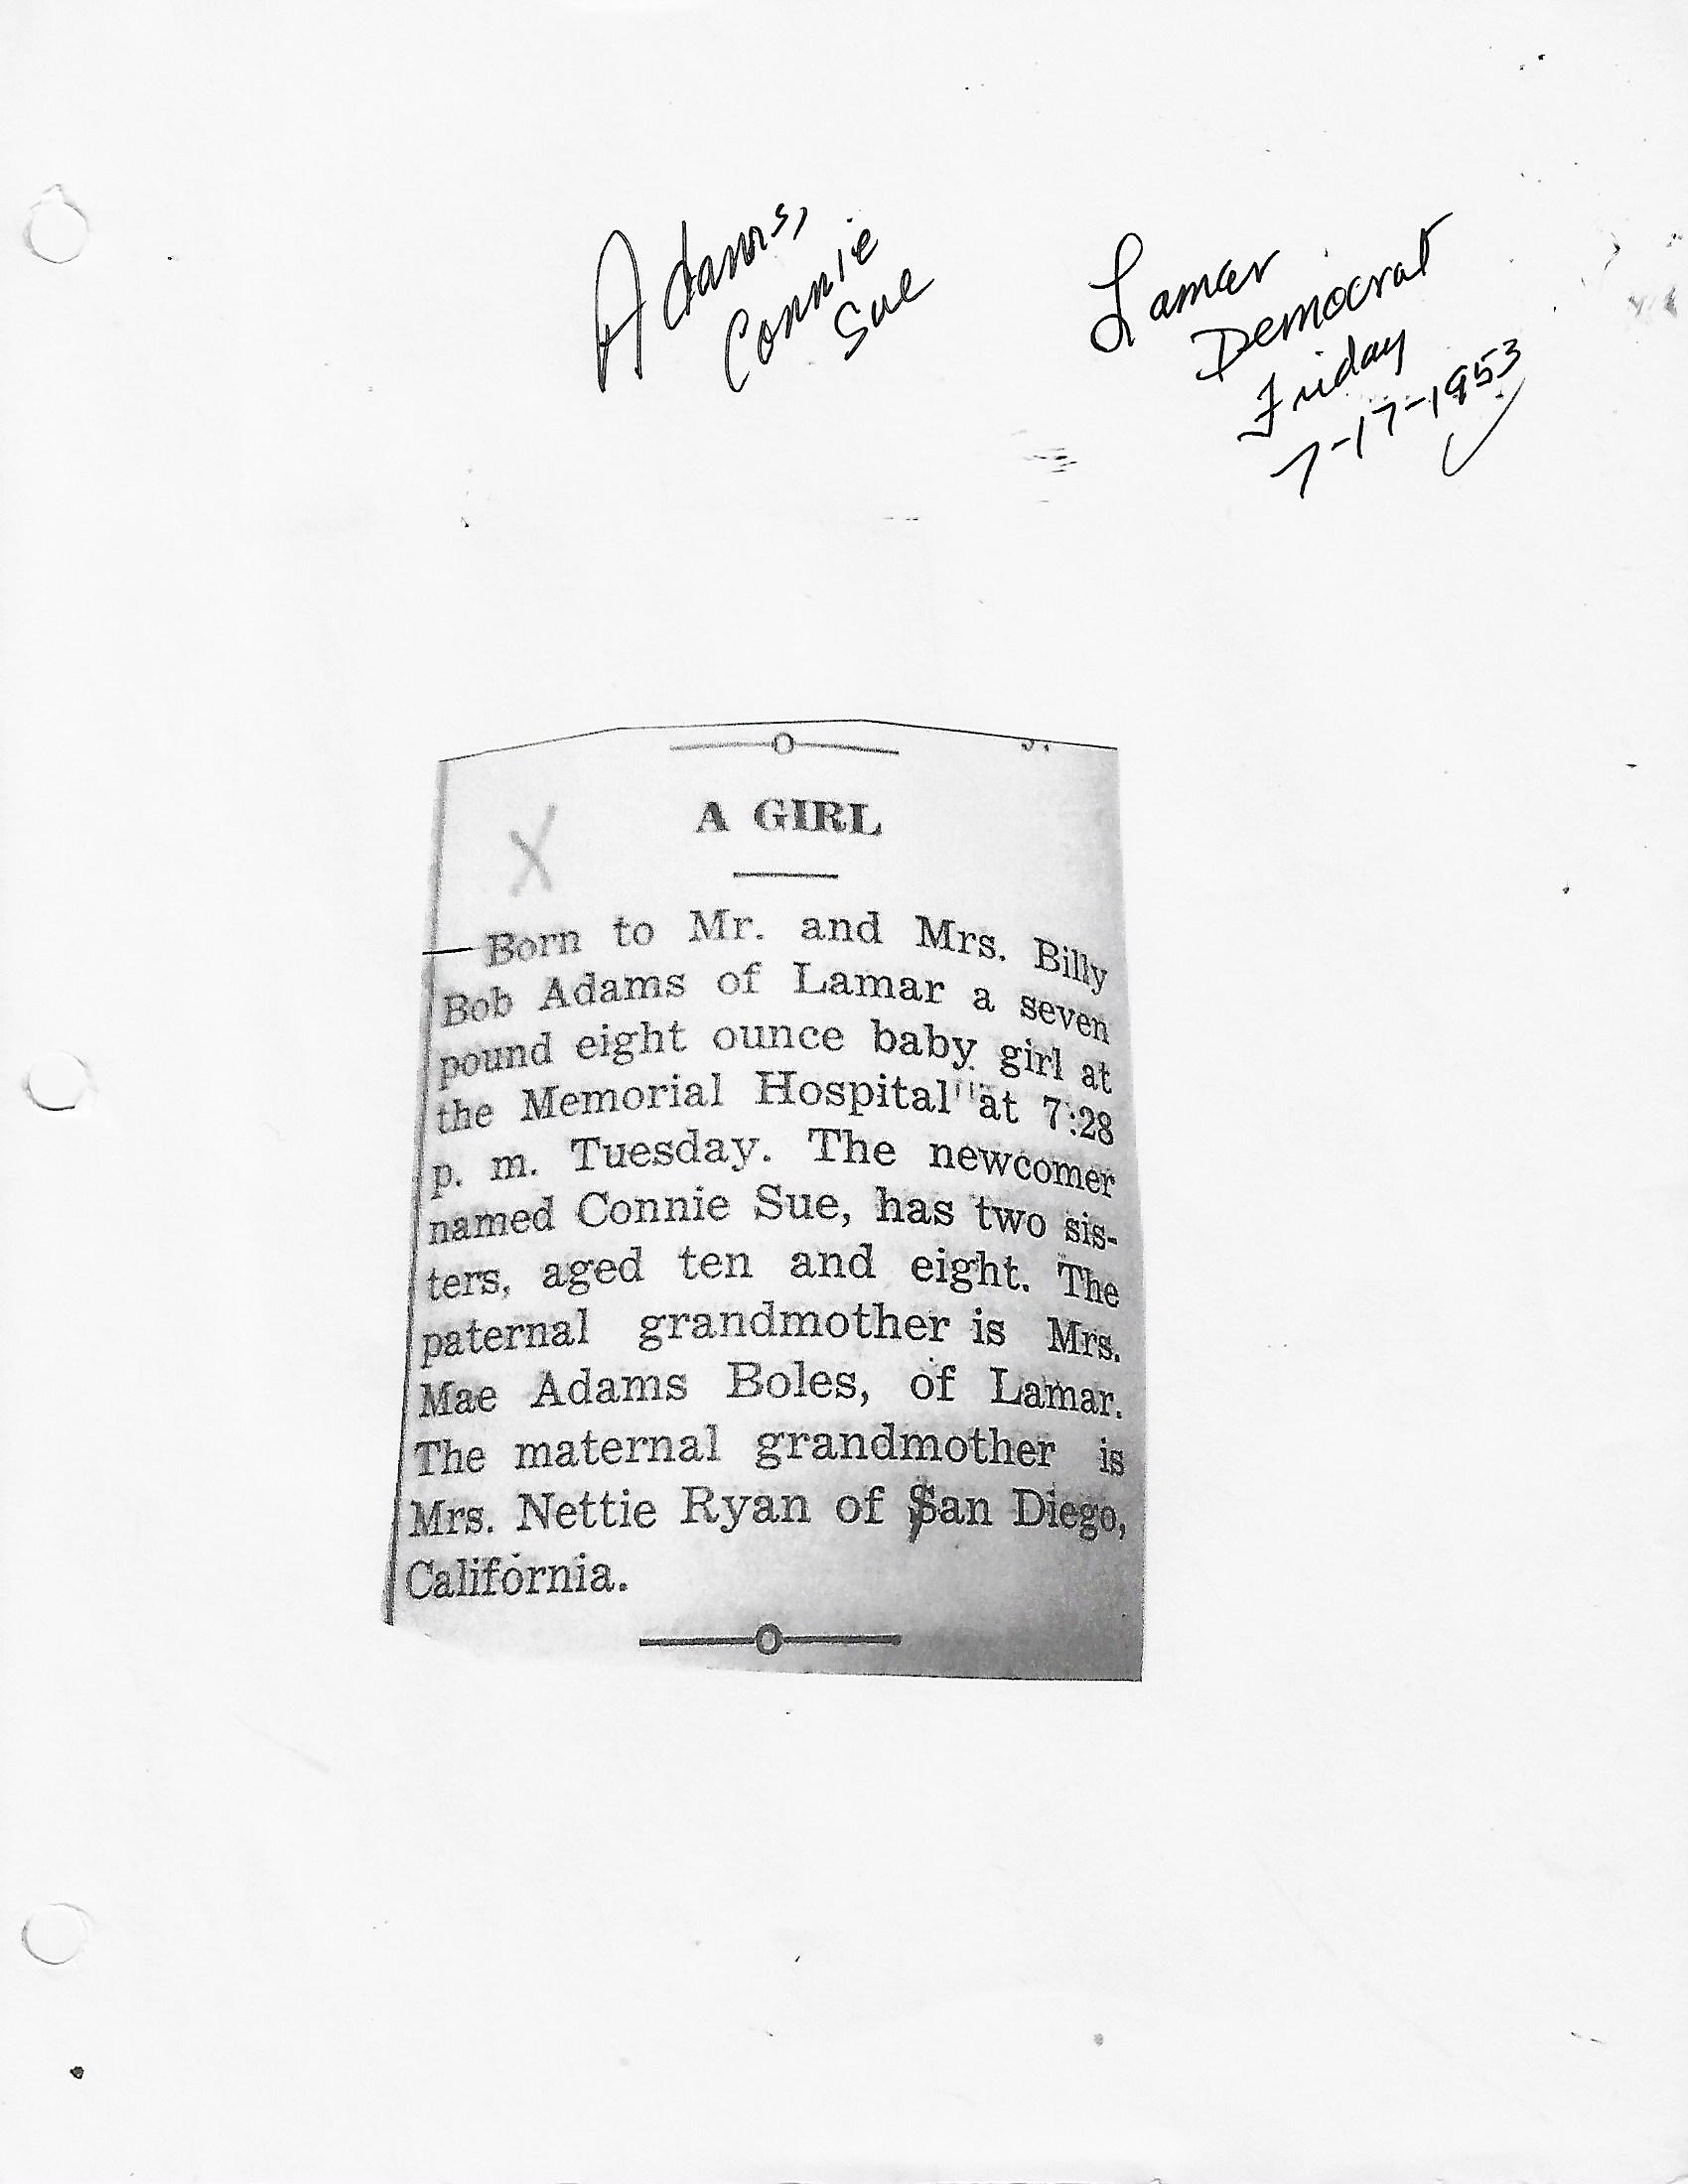 Adams,
Connie
Sue
Lamar
Democrat
Friday
7-17-1953
A GIRL
—Born to Mr. and Mrs. Billy
Bob Adams of Lamar a seven
pound eight ounce baby girl at
the Memorial Hospital at 7:28
p. m. Tuesday. The newcomer
named Connie Sue, has two sis-
ters, aged ten and eight. The
paternal grandmother is Mrs.
Mae Adams Boles, of Lamar.
The maternal grandmother is
Mrs. Nettie Ryan of San Diego,
California.